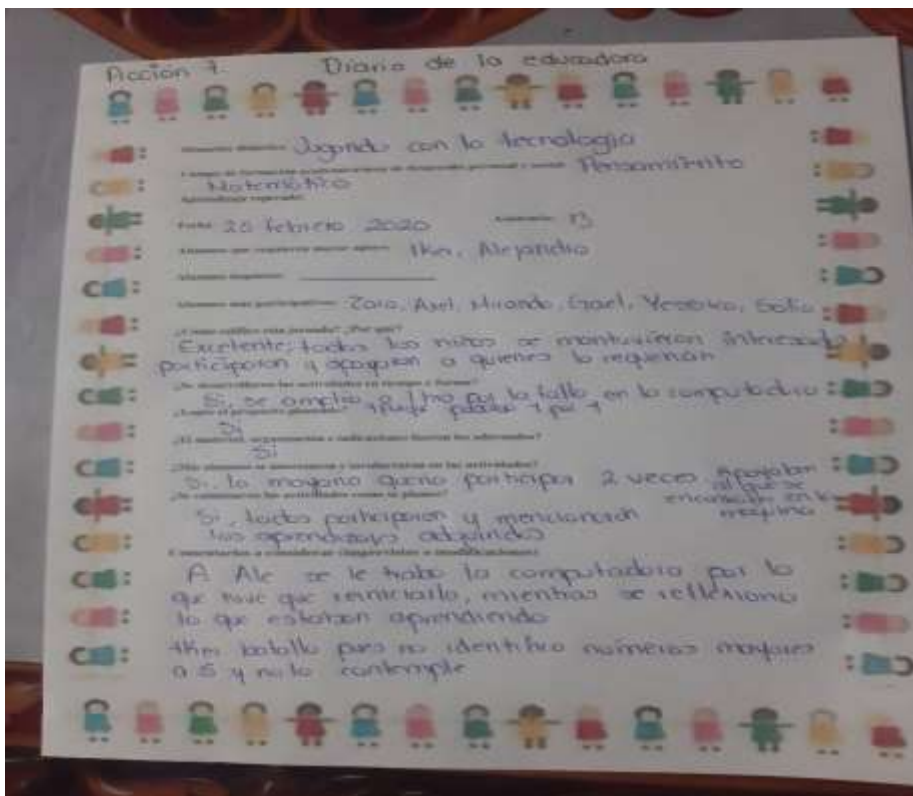 Acción 7. Diario de la educadora
Situación didáctica: Jugando con la tecnología
Campo de formación académica/área de desarrollo personal y social: Pensamiento
Matemático
Aprendizaje esperado:
Fecha: 20 febrero 2020 Asistencia: 13
Alumnos que requirieron mayor apoyo: Iker, Alejandro
Alumnos
Alumnos más participativos: Zara, Axel, Miranda, Gael, Yessica, Sofia
¿Cómo califico esta jornada? ¿Por qué?
Excelente; todos los niños se mantuvieron interesados
participaron y apoyaron a quienes lo requerían
¿Se desarrollaron las actividades en tiempo y forma?
Si, se amplio por la falla en la computadora
¿Logré el propósito
Si
¿El material, organización e indicaciones fueron los adecuados?
Si
¿Mis alumnos se interesaron e involucraron en las actividades?
Si, la mayoria queria participar 2 veces Apoyaban
al que se
encontraba en la
maquina
¿Se culminaron las actividades como lo planeé?
Si, todos participaron y mencionaron
los aprendizajes adquiridos
Comentarios a considerar (imprevistos o modificaciones)
A Ale se le trabo la computadora por lo
que tuve que reiniciarla, mientras se reflexiono
lo que estaban aprendiendo
Iker batallo pues no identifico numeros mayores
a 5 y no lo contemple